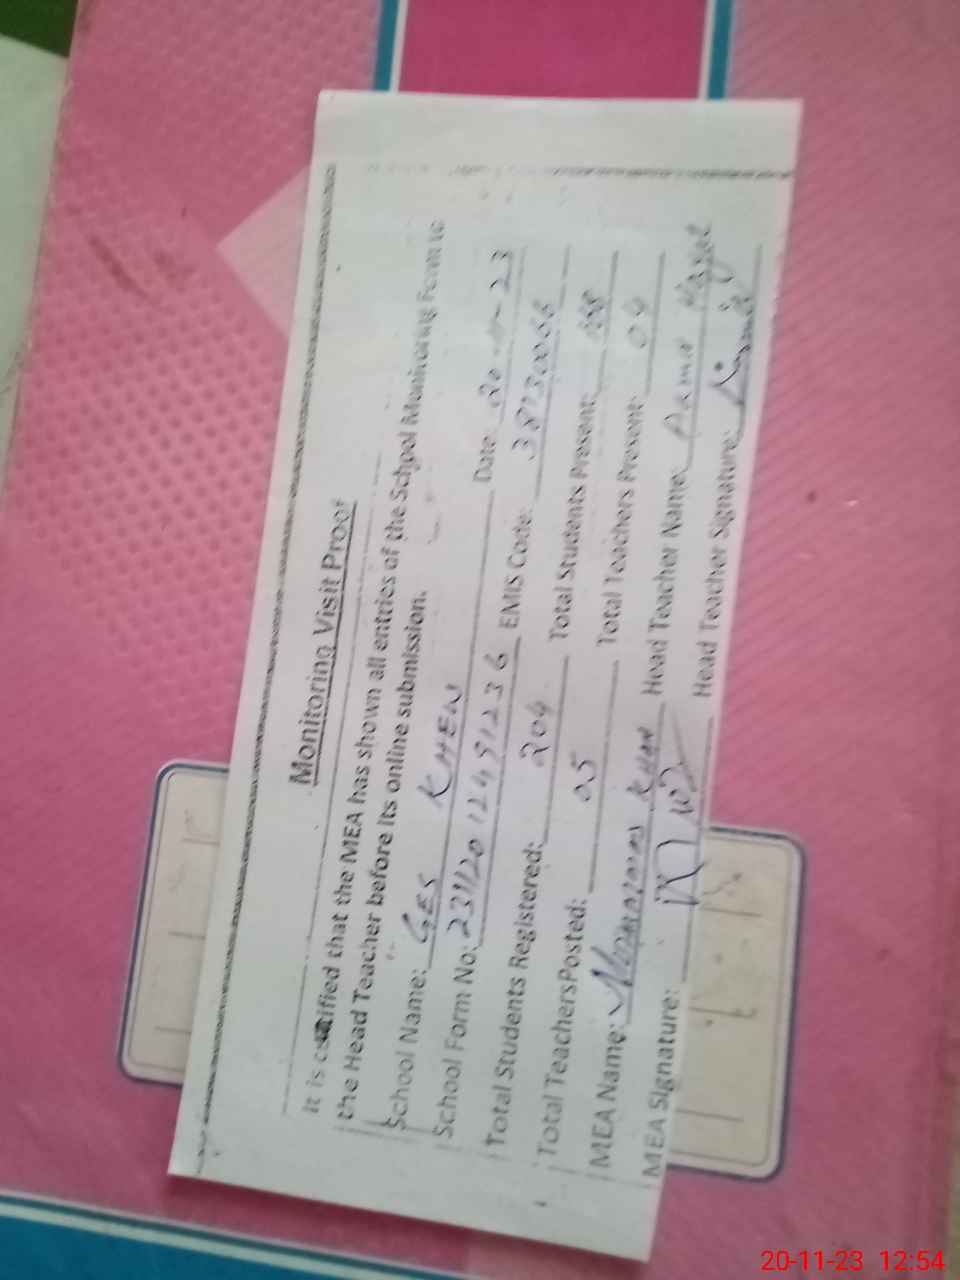 Monitoring Visit Proof
It is certified that the MEA has shown all entries of the School Monitoring Form to
the Head Teacher before its online submission.
School Name: GES KHEW Date: 20-11-23
School Form No: 231120 12491236 EMIS Code: 38730066
Total Students Registered: 204 Total Students Present:
Total Teachers Posted: 05 Total Teachers Present: 04
MEA Name: KHAN Head Teacher Name:
MEA Signature: Head Teacher Signature:
20-11-23 12:54